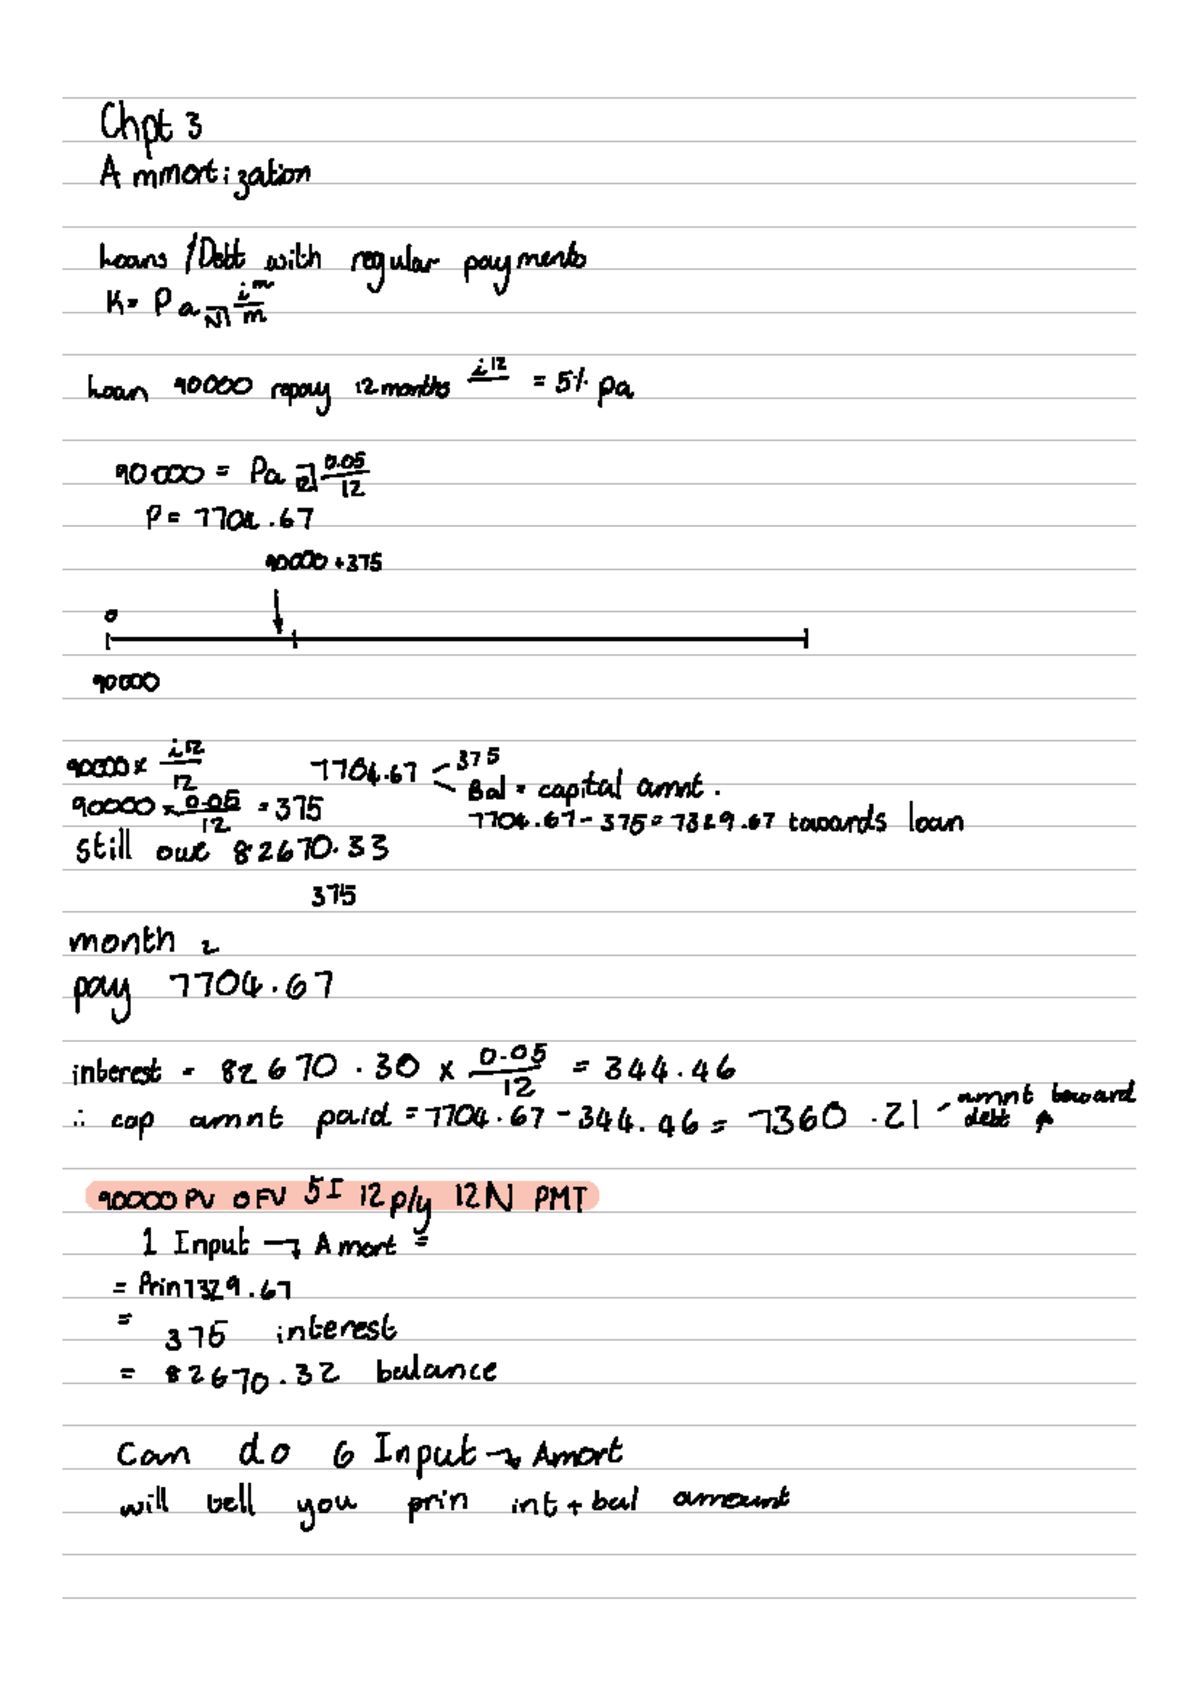 Chpt 3
Ammortization
Loans / Debt with regular payments
K = P a n̅| i^m/m
Loan 90000 repay 12 months i^12 = 5% pa
90000 = Pa 12̅| 0.05/12
P = 7704.67
90000 + 375
0
90000
90000 x i^12/12
7704.67 < 375
Bal = capital amnt.
90000 x 0.05/12 = 375
7704.67 - 375 = 7329.67 towards loan
still owe 82670.33
375
month 2
pay 7704.67
interest = 82670.30 x 0.05/12 = 344.46
∴ cap amnt paid = 7704.67 - 344.46 = 7360.21 - amnt toward debt
90000 PV 0 FV 5 I 12 p/y 12 N PMT
1 Input → Amort =
= Prin 7329.67
= 375 interest
= 82670.32 balance
Can do 6 Input → Amort
will tell you prin int + bal amount